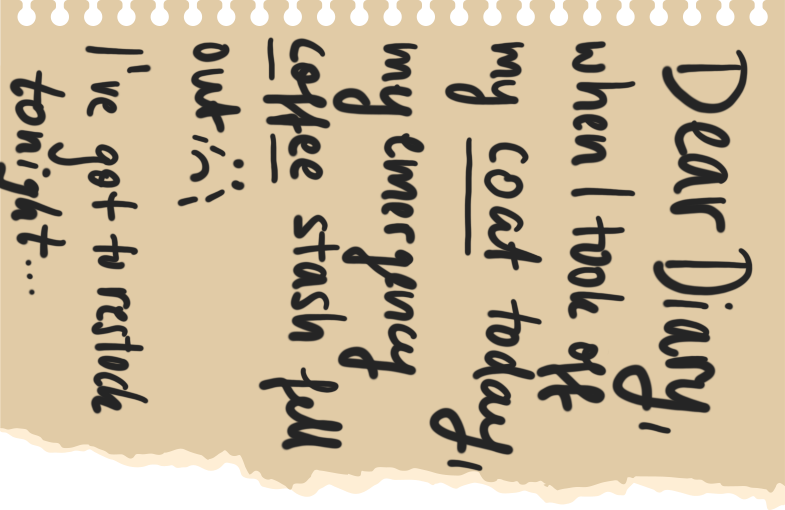 Dear Diary,
when I took off
my coat today,
my emergency
coffee stash fell
out
I've got to restock
tonight...